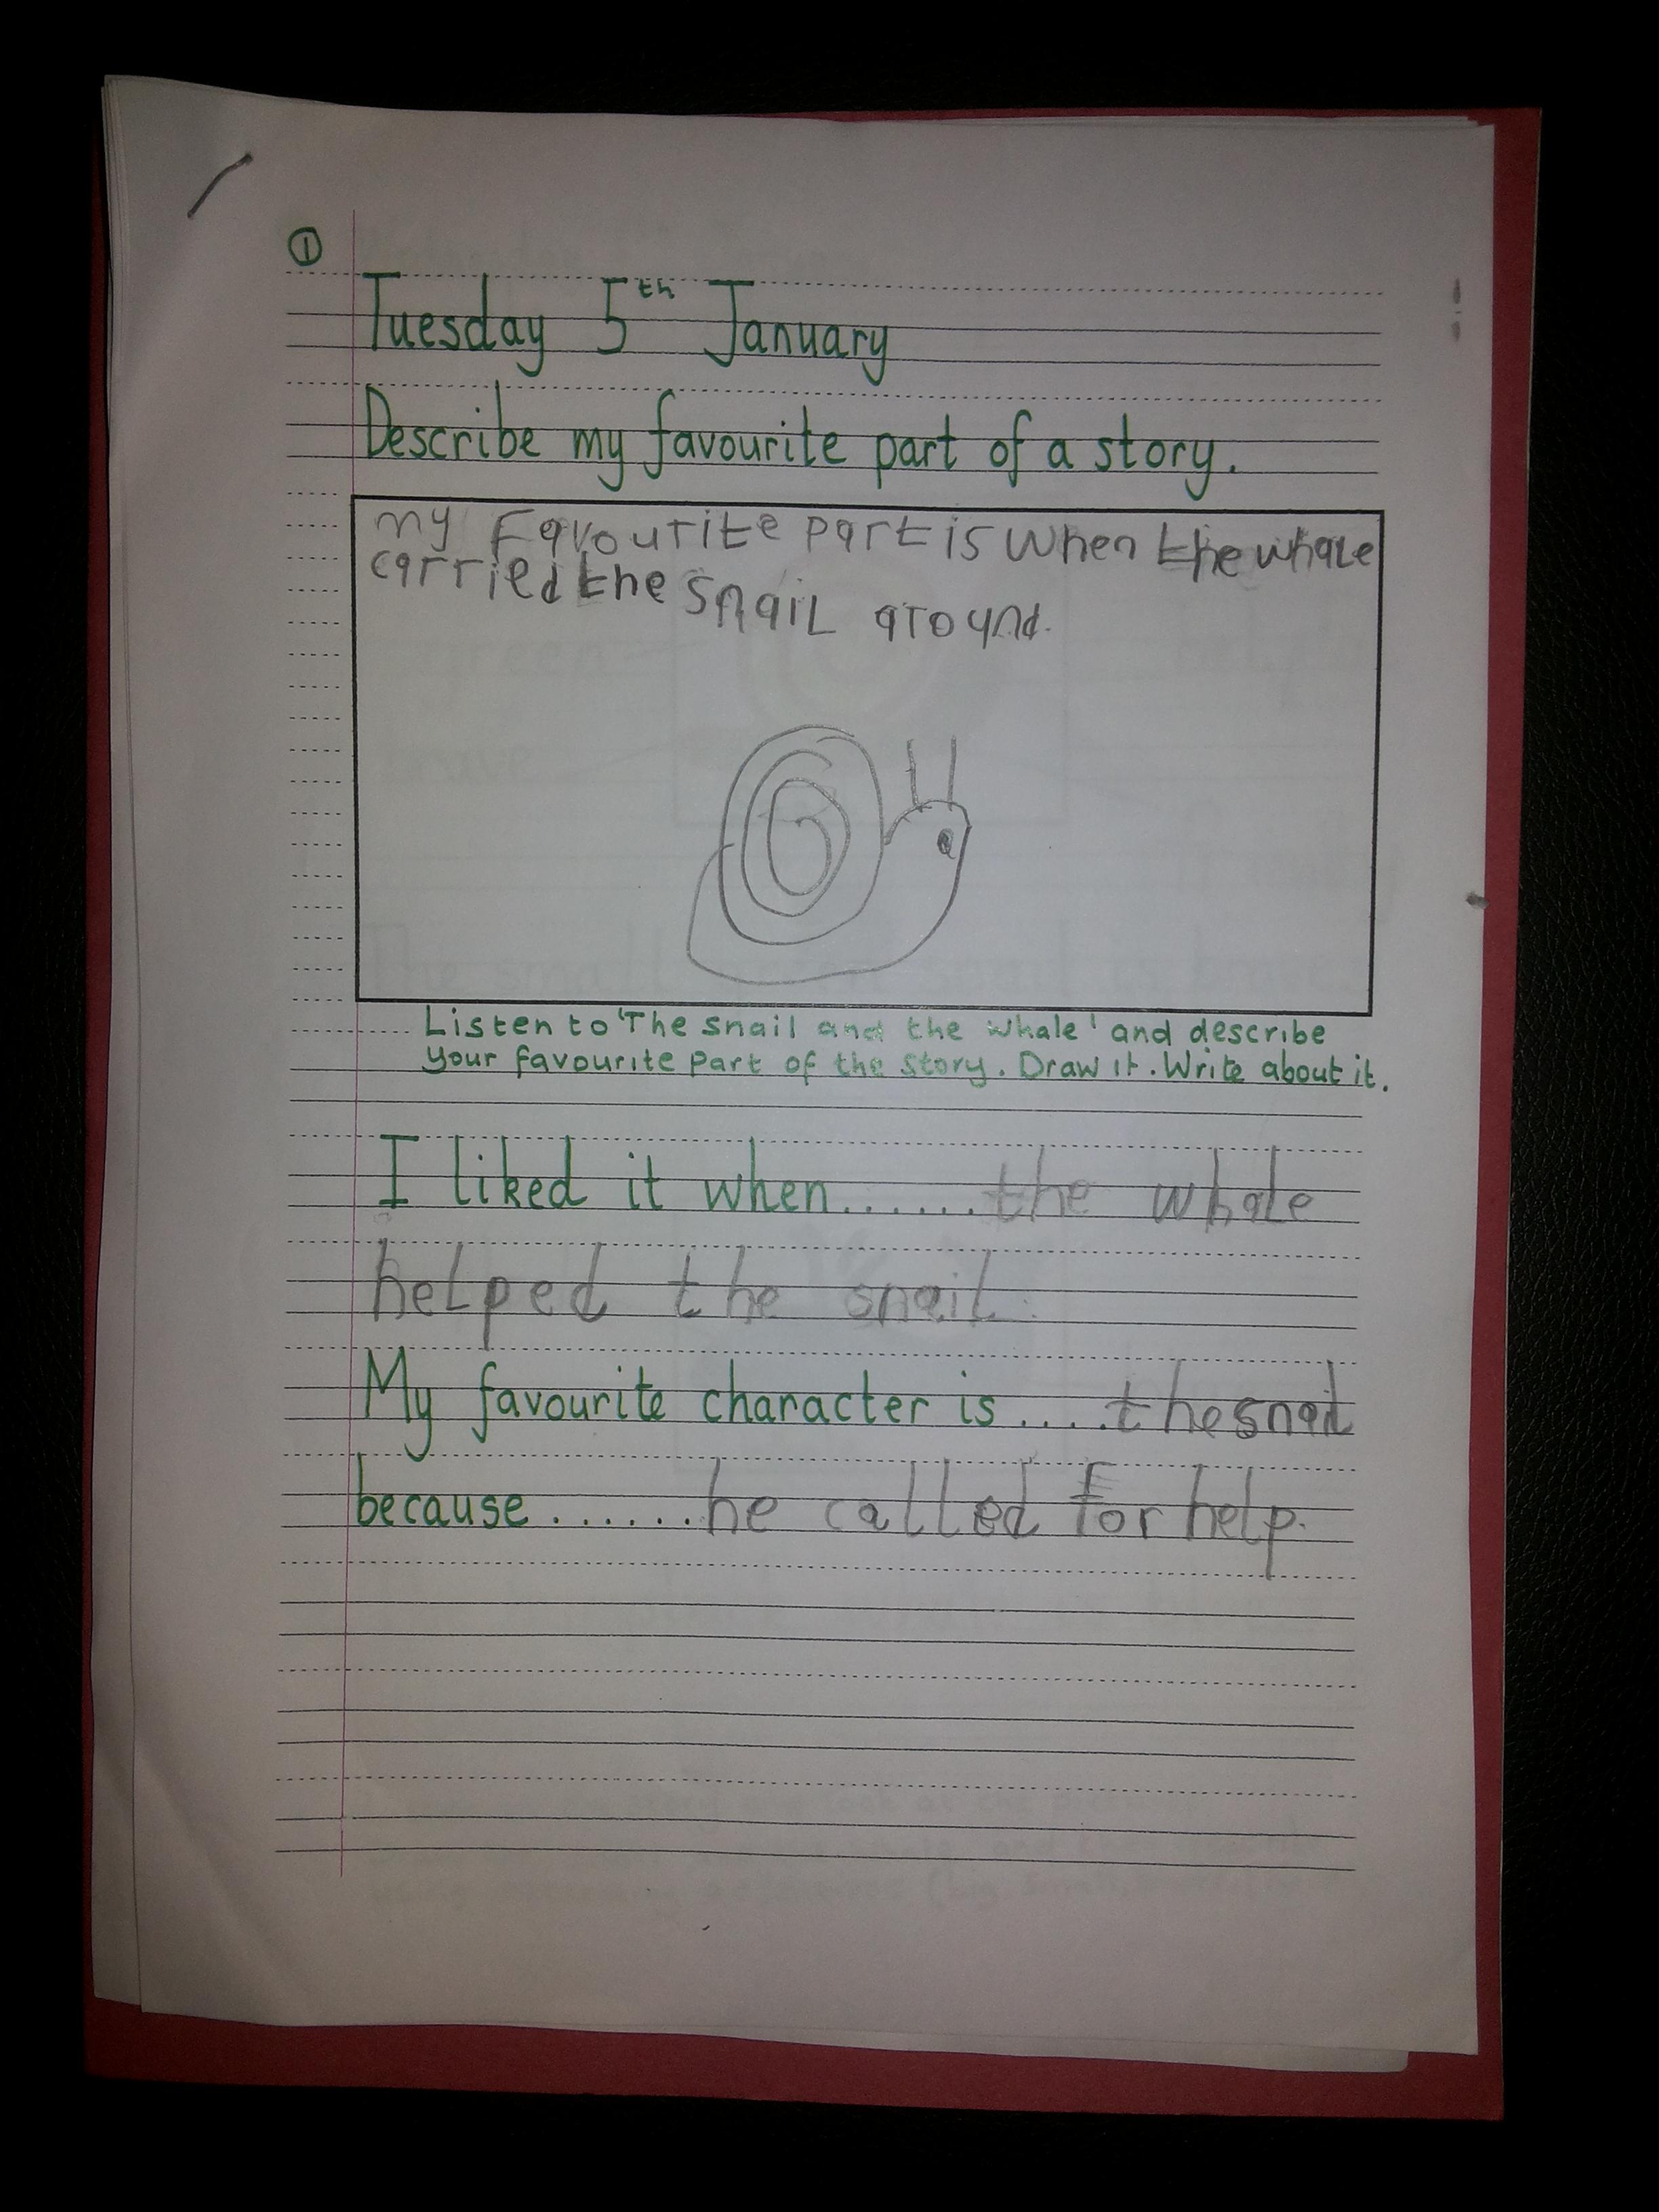 ①
Tuesday 5th January
Describe my favourite part of a story.
my Favourite part is when the whale
carried the snail around.
Listen to 'The Snail and the Whale' and describe
your favourite part of the story. Draw it. Write about it.
I liked it when.......the whale
helped the snail.
My favourite character is ....the snail
because.......he called for help.